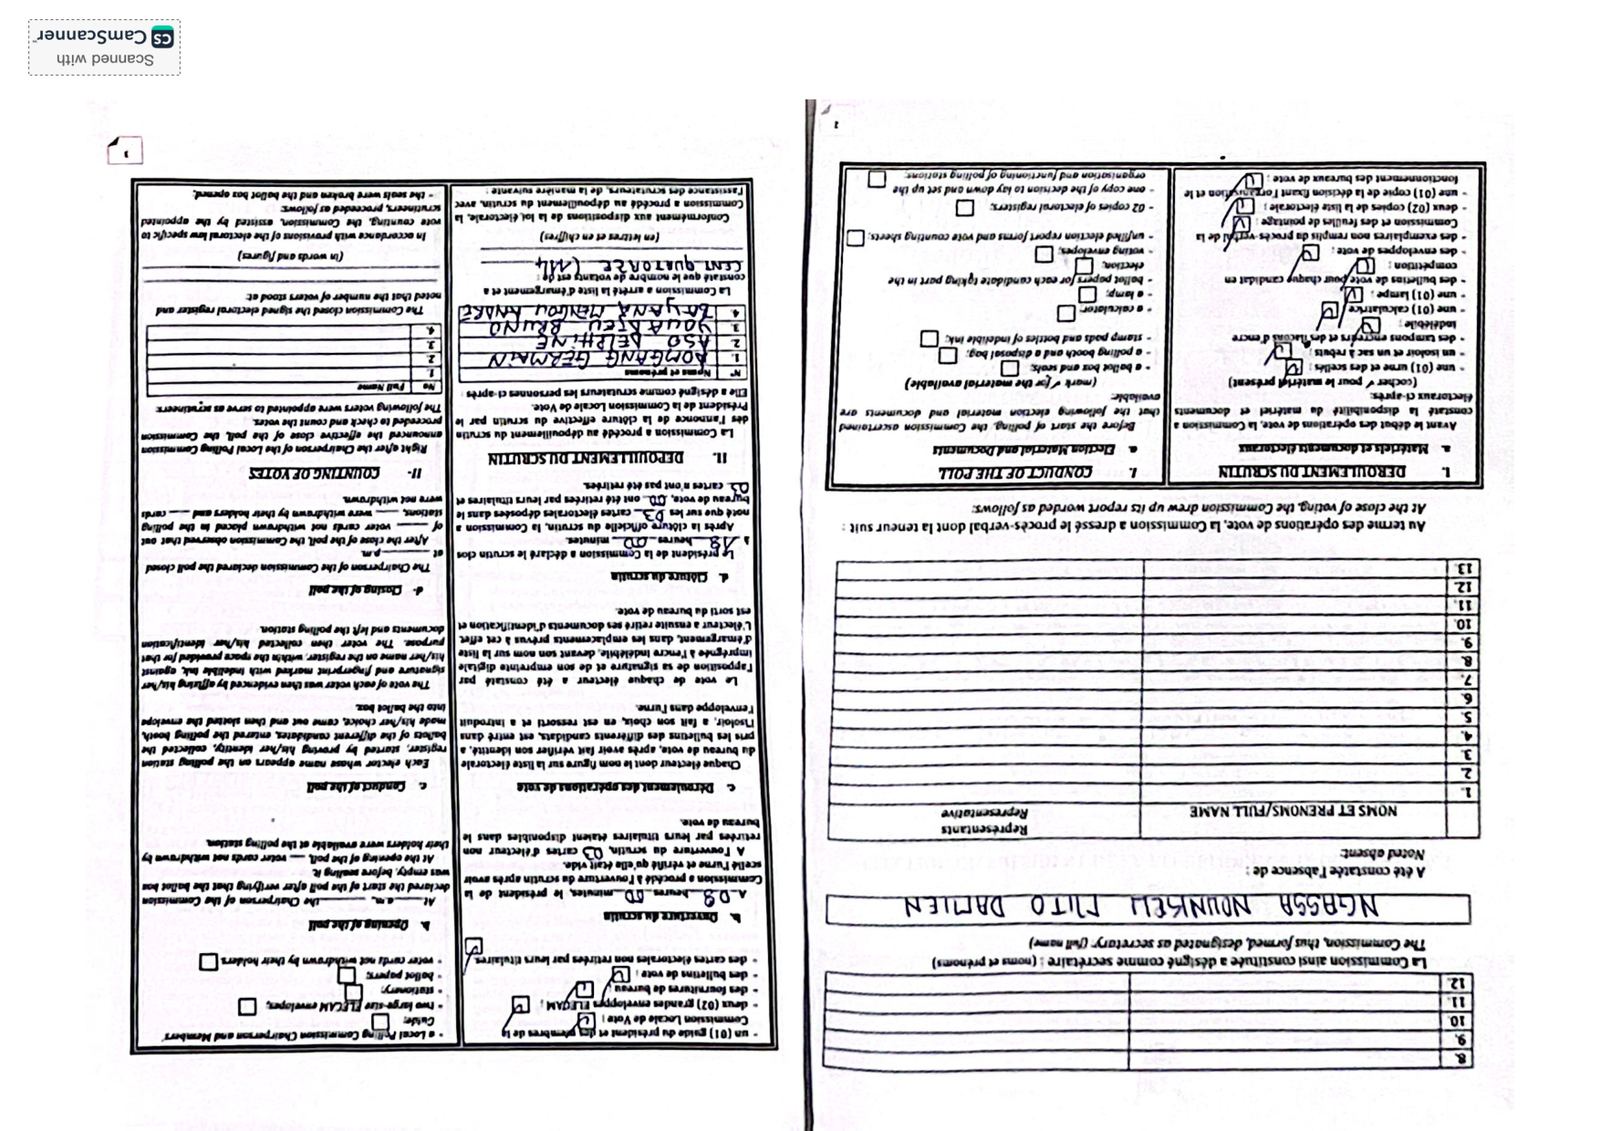 8.
9.
10.
11.
12.
La Commission ainsi constituée a désigné comme secrétaire : (noms et prénoms)
The Commission, thus formed, designated as secretary: (full name)
NGASSA NOUNKSEU FIITO DAMIEN
A été constatée l'absence de :
Noted absent:
NOMS ET PRENOMS/FULL NAME
Représentants
Representative
1.
2.
3.
4.
5.
6.
7.
8.
9.
10.
11.
12.
13.
Au terme des opérations de vote, la Commission a dressé le procès-verbal dont la teneur suit :
At the close of voting, the Commission drew up its report worded as follows:
I. DEROULEMENT DU SCRUTIN
a. Matériels et documents électoraux
Avant le début des opérations de vote, la Commission a
constaté la disponibilité du matériel et documents
électoraux ci-après:
(cocher ✓ pour le matériel présent)
- une (01) urne et des scellés ;
- un isoloir et un sac à rebuts ;
- des tampons encreurs et des flacons d'encre
indélébile ;
- une (01) calculatrice ;
- une (01) lampe ;
- des bulletins de vote pour chaque candidat en
compétition ;
- des enveloppes de vote ;
- des exemplaires non remplis du procès-verbal de la
Commission et des feuilles de pointage ;
- deux (02) copies de la liste électorale ;
- une (01) copie de la décision fixant l'organisation et le
fonctionnement des bureaux de vote ;
I. CONDUCT OF THE POLL
a. Election Material and Documents
Before the start of polling, the Commission ascertained
that the following election material and documents are
available:
(mark ✓ for the material available)
- a ballot box and seals;
- a polling booth and a disposal bag;
- stamp pads and bottles of indelible ink;
- a calculator;
- a lamp;
- ballot papers for each candidate taking part in the
election;
- voting envelopes;
- unfilled election report forms and vote counting sheets;
- 02 copies of electoral registers;
- one copy of the decision to lay down and set up the
organisation and functioning of polling stations;
2
- un (01) guide du président et des membres de la
Commission Locale de Vote ;
- deux (02) grandes enveloppes ELECAM ;
- des fournitures de bureau ;
- des bulletins de vote ;
- des cartes électorales non retirées par leurs titulaires.
b. Ouverture du scrutin
A 08 heures 00 minutes, le président de la
Commission a procédé à l'ouverture du scrutin après avoir
scellé l'urne et vérifié qu'elle était vide.
A l'ouverture du scrutin, 03 cartes d'électeur non
retirées par leurs titulaires étaient disponibles dans le
bureau de vote.
c. Déroulement des opérations de vote
Chaque électeur dont le nom figure sur la liste électorale
du bureau de vote, après avoir fait vérifier son identité, a
pris les bulletins des différents candidats, est entré dans
l'isoloir, a fait son choix, en est ressorti et a introduit
l'enveloppe dans l'urne.
Le vote de chaque électeur a été constaté par
l'apposition de sa signature et de son empreinte digitale
imprégnée à l'encre indélébile, devant son nom sur la liste
d'émargement, dans les emplacements prévus à cet effet.
L'électeur a ensuite retiré ses documents d'identification et
est sorti du bureau de vote.
d. Clôture du scrutin
Le président de la Commission a déclaré le scrutin clos
à 18 heures 00 minutes.
Après la clôture officielle du scrutin, la Commission a
noté que sur les 03 cartes électorales déposées dans le
bureau de vote, 00 ont été retirées par leurs titulaires et
03 cartes n'ont pas été retirées.
II. DEPOUILLEMENT DU SCRUTIN
La Commission a procédé au dépouillement du scrutin
dès l'annonce de la clôture effective du scrutin par le
Président de la Commission Locale de Vote.
Elle a désigné comme scrutateurs les personnes ci-après :
N° Noms et prénoms
1. KOMGANG GERMAIN
2. ASO DELPHINE
3. YOUATEU BRUNO
4. ZO'YANA MENDOU ANDRE
La Commission a arrêté la liste d'émargement et a
constaté que le nombre de votants est de :
CENT QUATORZE (114
(en lettres et en chiffres)
Conformément aux dispositions de la loi électorale, la
Commission a procédé au dépouillement du scrutin, avec
l'assistance des scrutateurs, de la manière suivante :
- a Local Polling Commission Chairperson and Members'
Guide;
- two large-size ELECAM envelopes;
- stationery;
- ballot papers;
- voter cards not withdrawn by their holders
b. Opening of the poll
At a.m, the Chairperson of the Commission
declared the start of the poll after verifying that the ballot box
was empty, before sealing it.
At the opening of the poll, voter cards not withdrawn by
their holders were available at the polling station.
c. Conduct of the poll
Each elector whose name appears on the polling station
register, started by proving his/her identity, collected the
ballots of the different candidates, entered the polling booth,
made his/her choice, came out and then slotted the envelope
into the ballot box.
The vote of each voter was then evidenced by affixing his/her
signature and fingerprint marked with indelible ink, against
his/her name on the register, within the space provided for that
purpose. The voter then collected his/her identification
documents and left the polling station.
d- Closing of the poll
The Chairperson of the Commission declared the poll closed
at p.m.
After the close of the poll, the Commission observed that out
of voter cards not withdrawn placed in the polling
stations, were withdrawn by their holders and cards
were not withdrawn.
II- COUNTING OF VOTES
Right after the Chairperson of the Local Polling Commission
announced the effective close of the poll, the Commission
proceeded to check and count the votes.
The following voters were appointed to serve as scrutineers:
No Full Name
1.
2.
3.
4.
The Commission closed the signed electoral register and
noted that the number of voters stood at:
(in words and figures)
In accordance with provisions of the electoral law specific to
vote counting, the Commission, assisted by the appointed
scrutineers, proceeded as follows:
- the seals were broken and the ballot box opened.
3
Scanned with
CS CamScanner